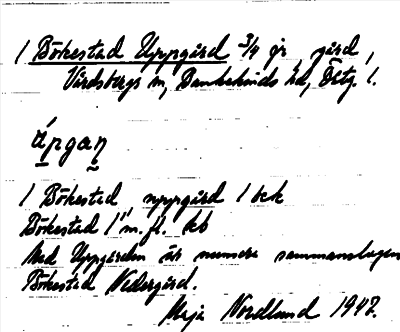 1 Bökestad Uppgård 3/4 gr, gård,
Vårdsbergs sn, Bankekinds hd, Östg. l.
ápgaṇ
1 Bökestad uppgård 1 bek
Bökestad 1" m. fl. kb
Med Uppgården är numera sammanslagen
Bökestad Nedergård.
Nordlund 1947.